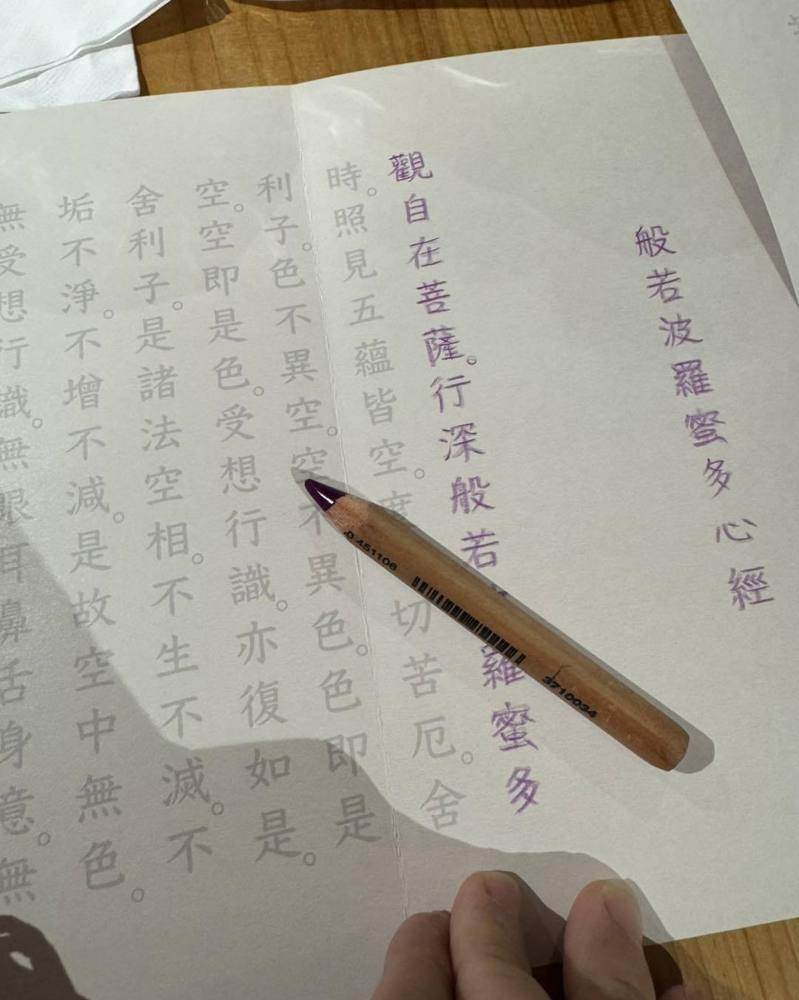 般若波羅蜜多心經
觀自在菩薩。行深般若羅蜜多
時。照見五蘊皆空。度切苦厄。舍
利子。色不異空。空不異色。色即是
空。空即是色。受想行識。亦復如是。
舍利子。是諸法空相。不生不滅。不
垢不淨。不增不減。是故空中無色。
無受想行識。無眼耳鼻舌身意。無
0 451108
3710034